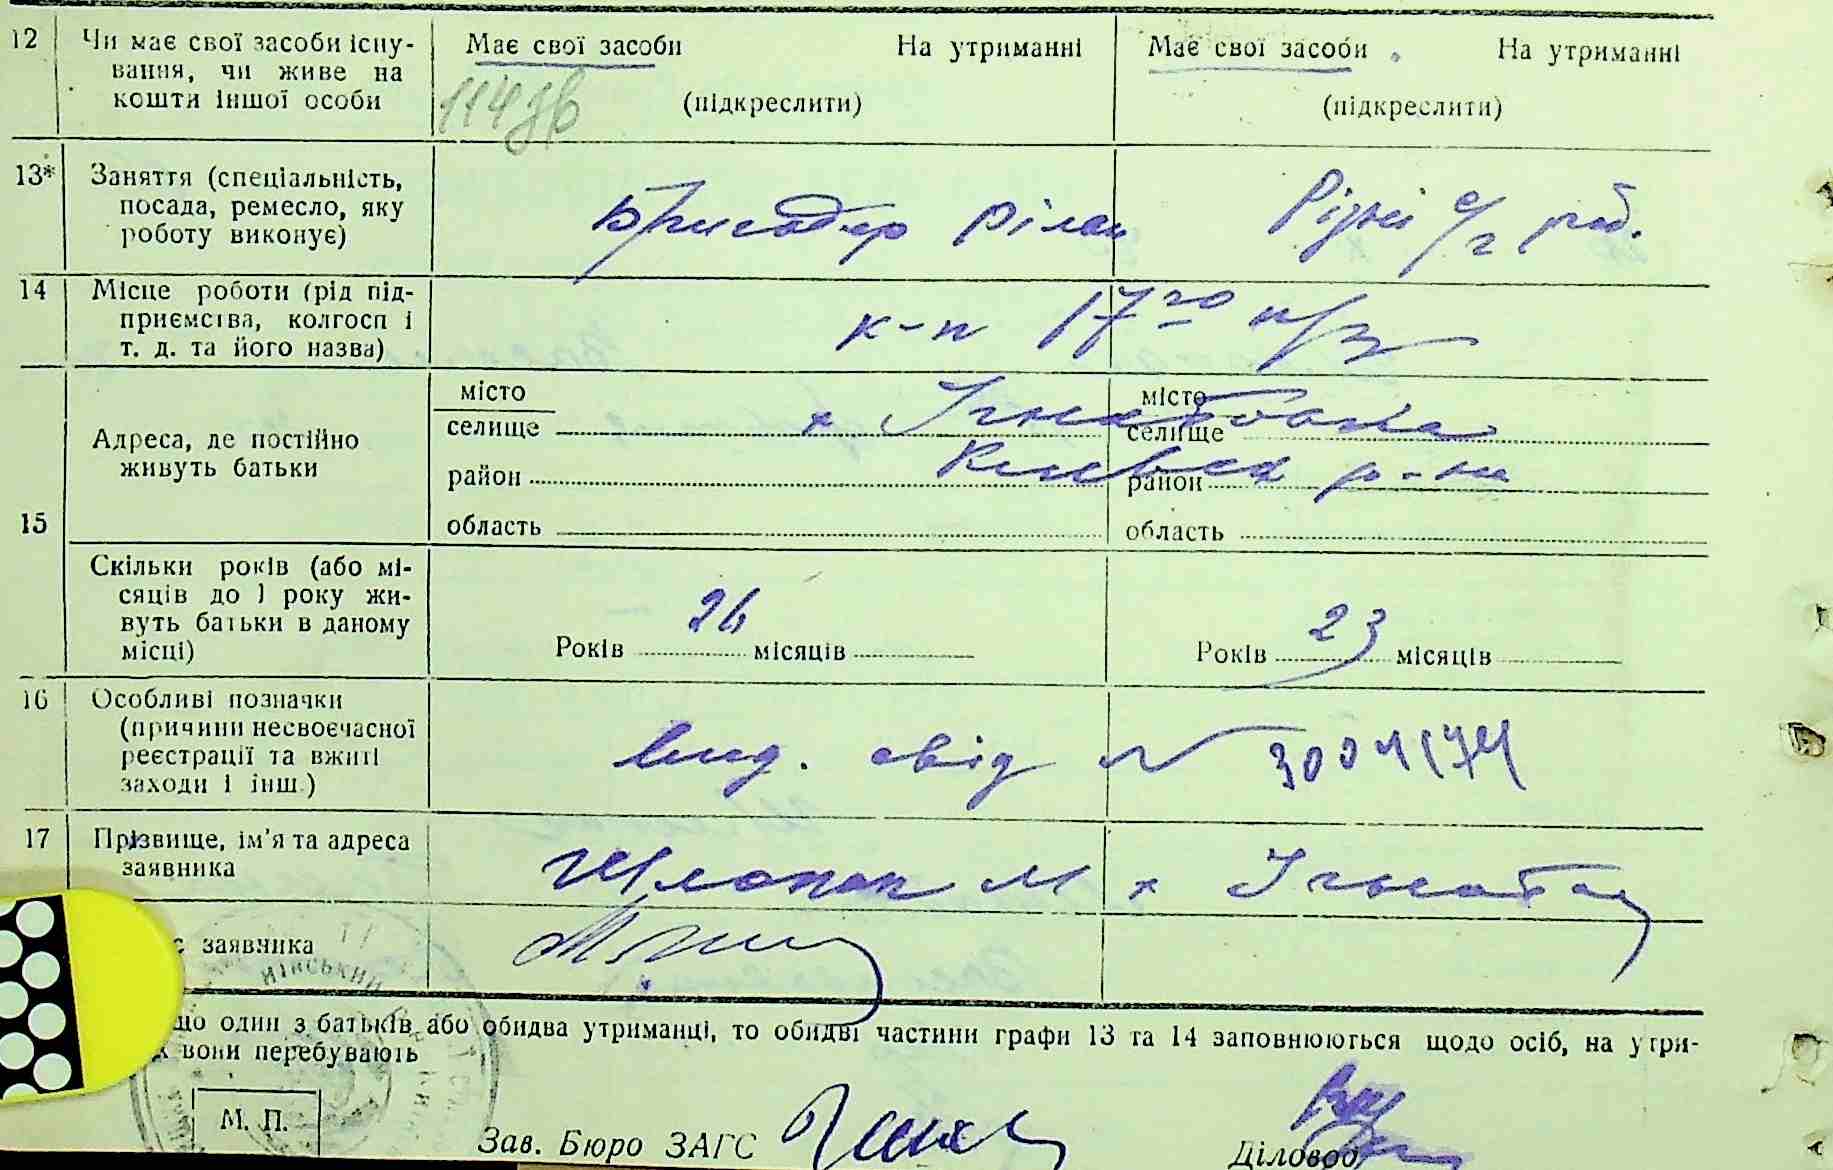 12 Чи має свої засоби існу-
вання, чи живе на
кошти іншої особи
Має свої засоби На утриманні
(підкреслити)
Має свої засоби На утриманні
(підкреслити)
114
13* Заняття (спеціальність,
посада, ремесло, яку
роботу виконує)
Бригадер
Різні с/г роб.
14 Місце роботи (рід під-
приємства, колгосп і
т. д. та його назва)
к-п 17го п/з
15 Адреса, де постійно
живуть батьки
місто
селище х Ігнатовка
район р-на
область
місто
селище
район
область
Скільки років (або мі-
сяців до 1 року жи-
вуть батьки в даному
місці)
Років 26 місяців
Років 23 місяців
16 Особливі позначки
(причини несвоєчасної
реєстрації та вжиті
заходи і інш.)
вид. свід №
17 Прізвище, ім'я та адреса
заявника
М х
с заявника
до один з батьків або обидва утриманці, то обидві частини графи 13 та 14 заповнюються щодо осіб, на утри-
х вони перебувають
М. П.
Зав. Бюро ЗАГС
Діловод